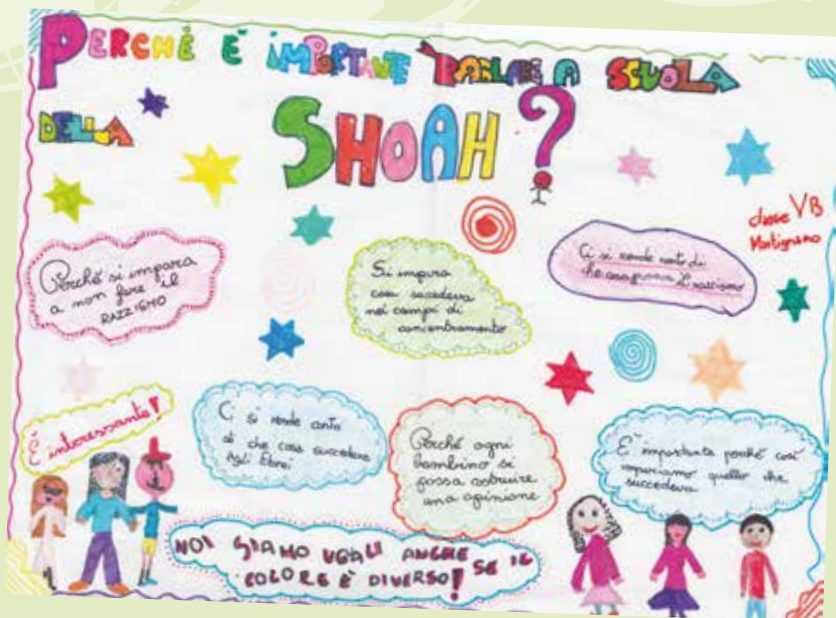 PERCHÈ È IMPORTANTE PARLARE A SCUOLA
DELLA
SHOAH?
classe VB
Martignano
Perché si impara
a non fare il
RAZZISMO
Si impara
cosa succedeva
nei campi di
concentramento
Ci si rende conto di
che cosa provoca il razzismo
È interessante!
Ci si rende conto
di che cosa succedeva
Agli Ebrei
Perché ogni
bambino si
possa costruire
una opinione
E' importante perché così
impariamo quello che
succedeva
NOI SIAMO UGALI ANCHE SE IL
COLORE È DIVERSO!